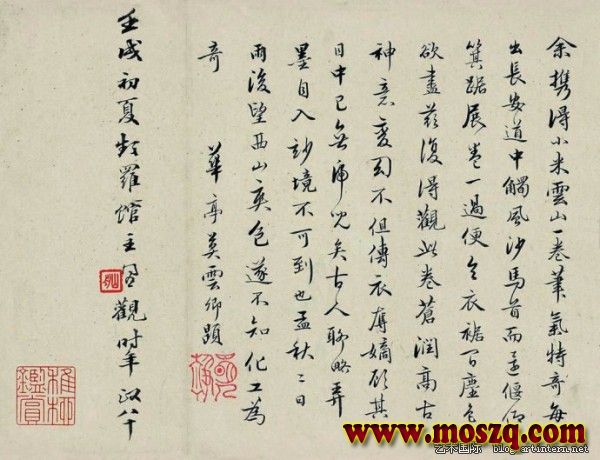 余携得小米雲山一卷筆氣特奇每
出長安道中觸風沙馬首而還偃仰
箕踞展卷一過便令衣裾間塵色
欲盡茲復得觀此卷蒼潤高古
神意變幻不但傳衣嫡顧其
目中已無虎兒矣古人聊略弄
墨自入妙境不可到也孟秋二日
雨後望西山爽色遂不知化工為
奇
華亭莫雲卿題
壬戌初夏頻羅館主觀時年政八十
稚柳
鑑賞
www.moszq.com
艺术国际 blog.artintern.net